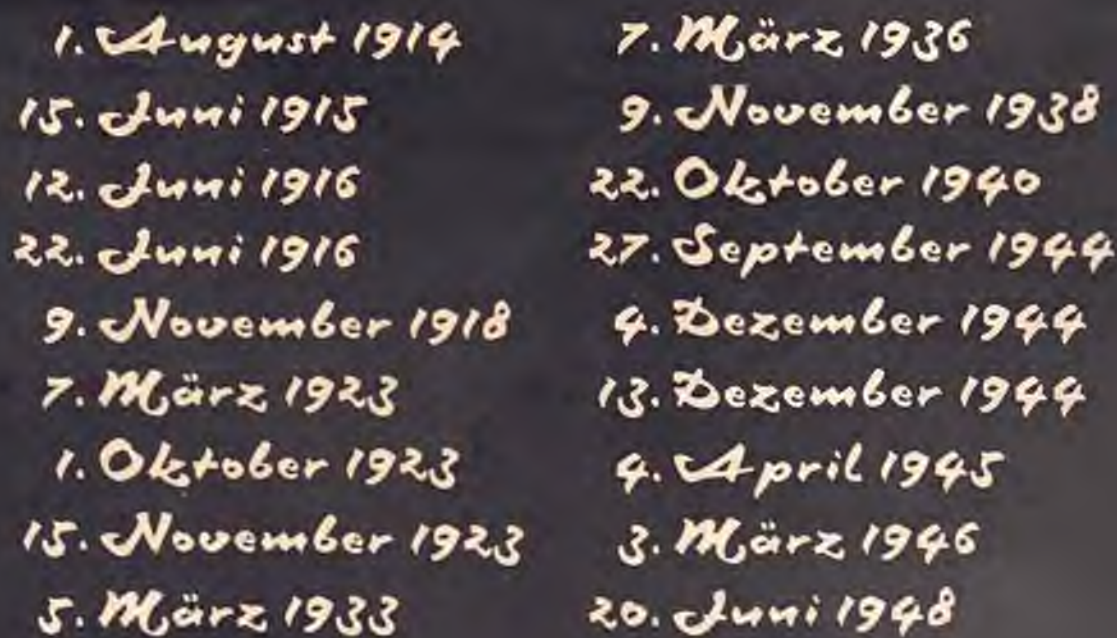 1. August 1914
15. Juni 1915
12. Juni 1916
22. Juni 1916
9. November 1918
7. März 1923
1. Oktober 1923
15. November 1923
5. März 1933
7. März 1936
9. November 1938
22. Oktober 1940
27. September 1944
4. Dezember 1944
13. Dezember 1944
4. April 1945
3. März 1946
20. Juni 1948